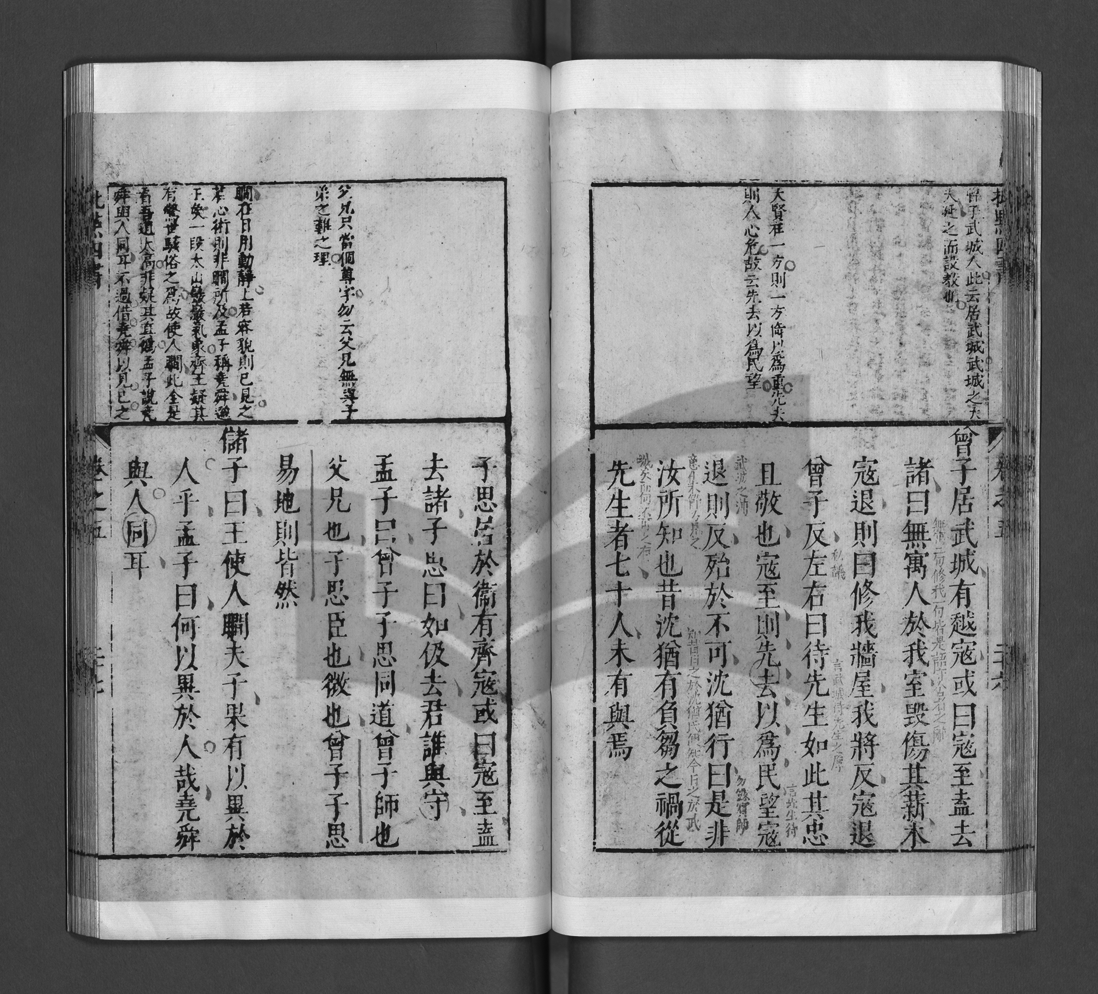 曾子武城人此云居武城武城之大
夫延之而設教也
大賢在一方則一方倚以為重先去
則人心危故云先去以為民望
曾子居武城有越寇或曰寇至盍去
諸曰無寓人於我室毀傷其薪木
寇退則曰修我牆屋我將反寇退
曾子反左右曰待先生如此其忠
且敬也寇至則先去以為民望寇
退則反殆於不可沈猶行曰是非
汝所知也昔沈猶有負芻之禍從
先生者七十人未有與焉
卷之五
二十六
父兄只當個尊字勿云父兄無與子
弟之難之理
瞷在日用動靜上若容貌則已見之
若心術則非瞷所及孟子稱堯舜道
王矣一段太山巖巖氣象齊王疑其
有驚世駭俗之為故使人瞷此全是
舜與人同耳不過借堯舜以見己之
子思居於衛有齊寇或曰寇至盍
去諸子思曰如伋去君誰與守
孟子曰曾子子思同道曾子師也
父兄也子思臣也微也曾子子思
易地則皆然
儲子曰王使人瞷夫子果有以異於
人乎孟子曰何以異於人哉堯舜
與人同耳
四書
卷之五
二十七